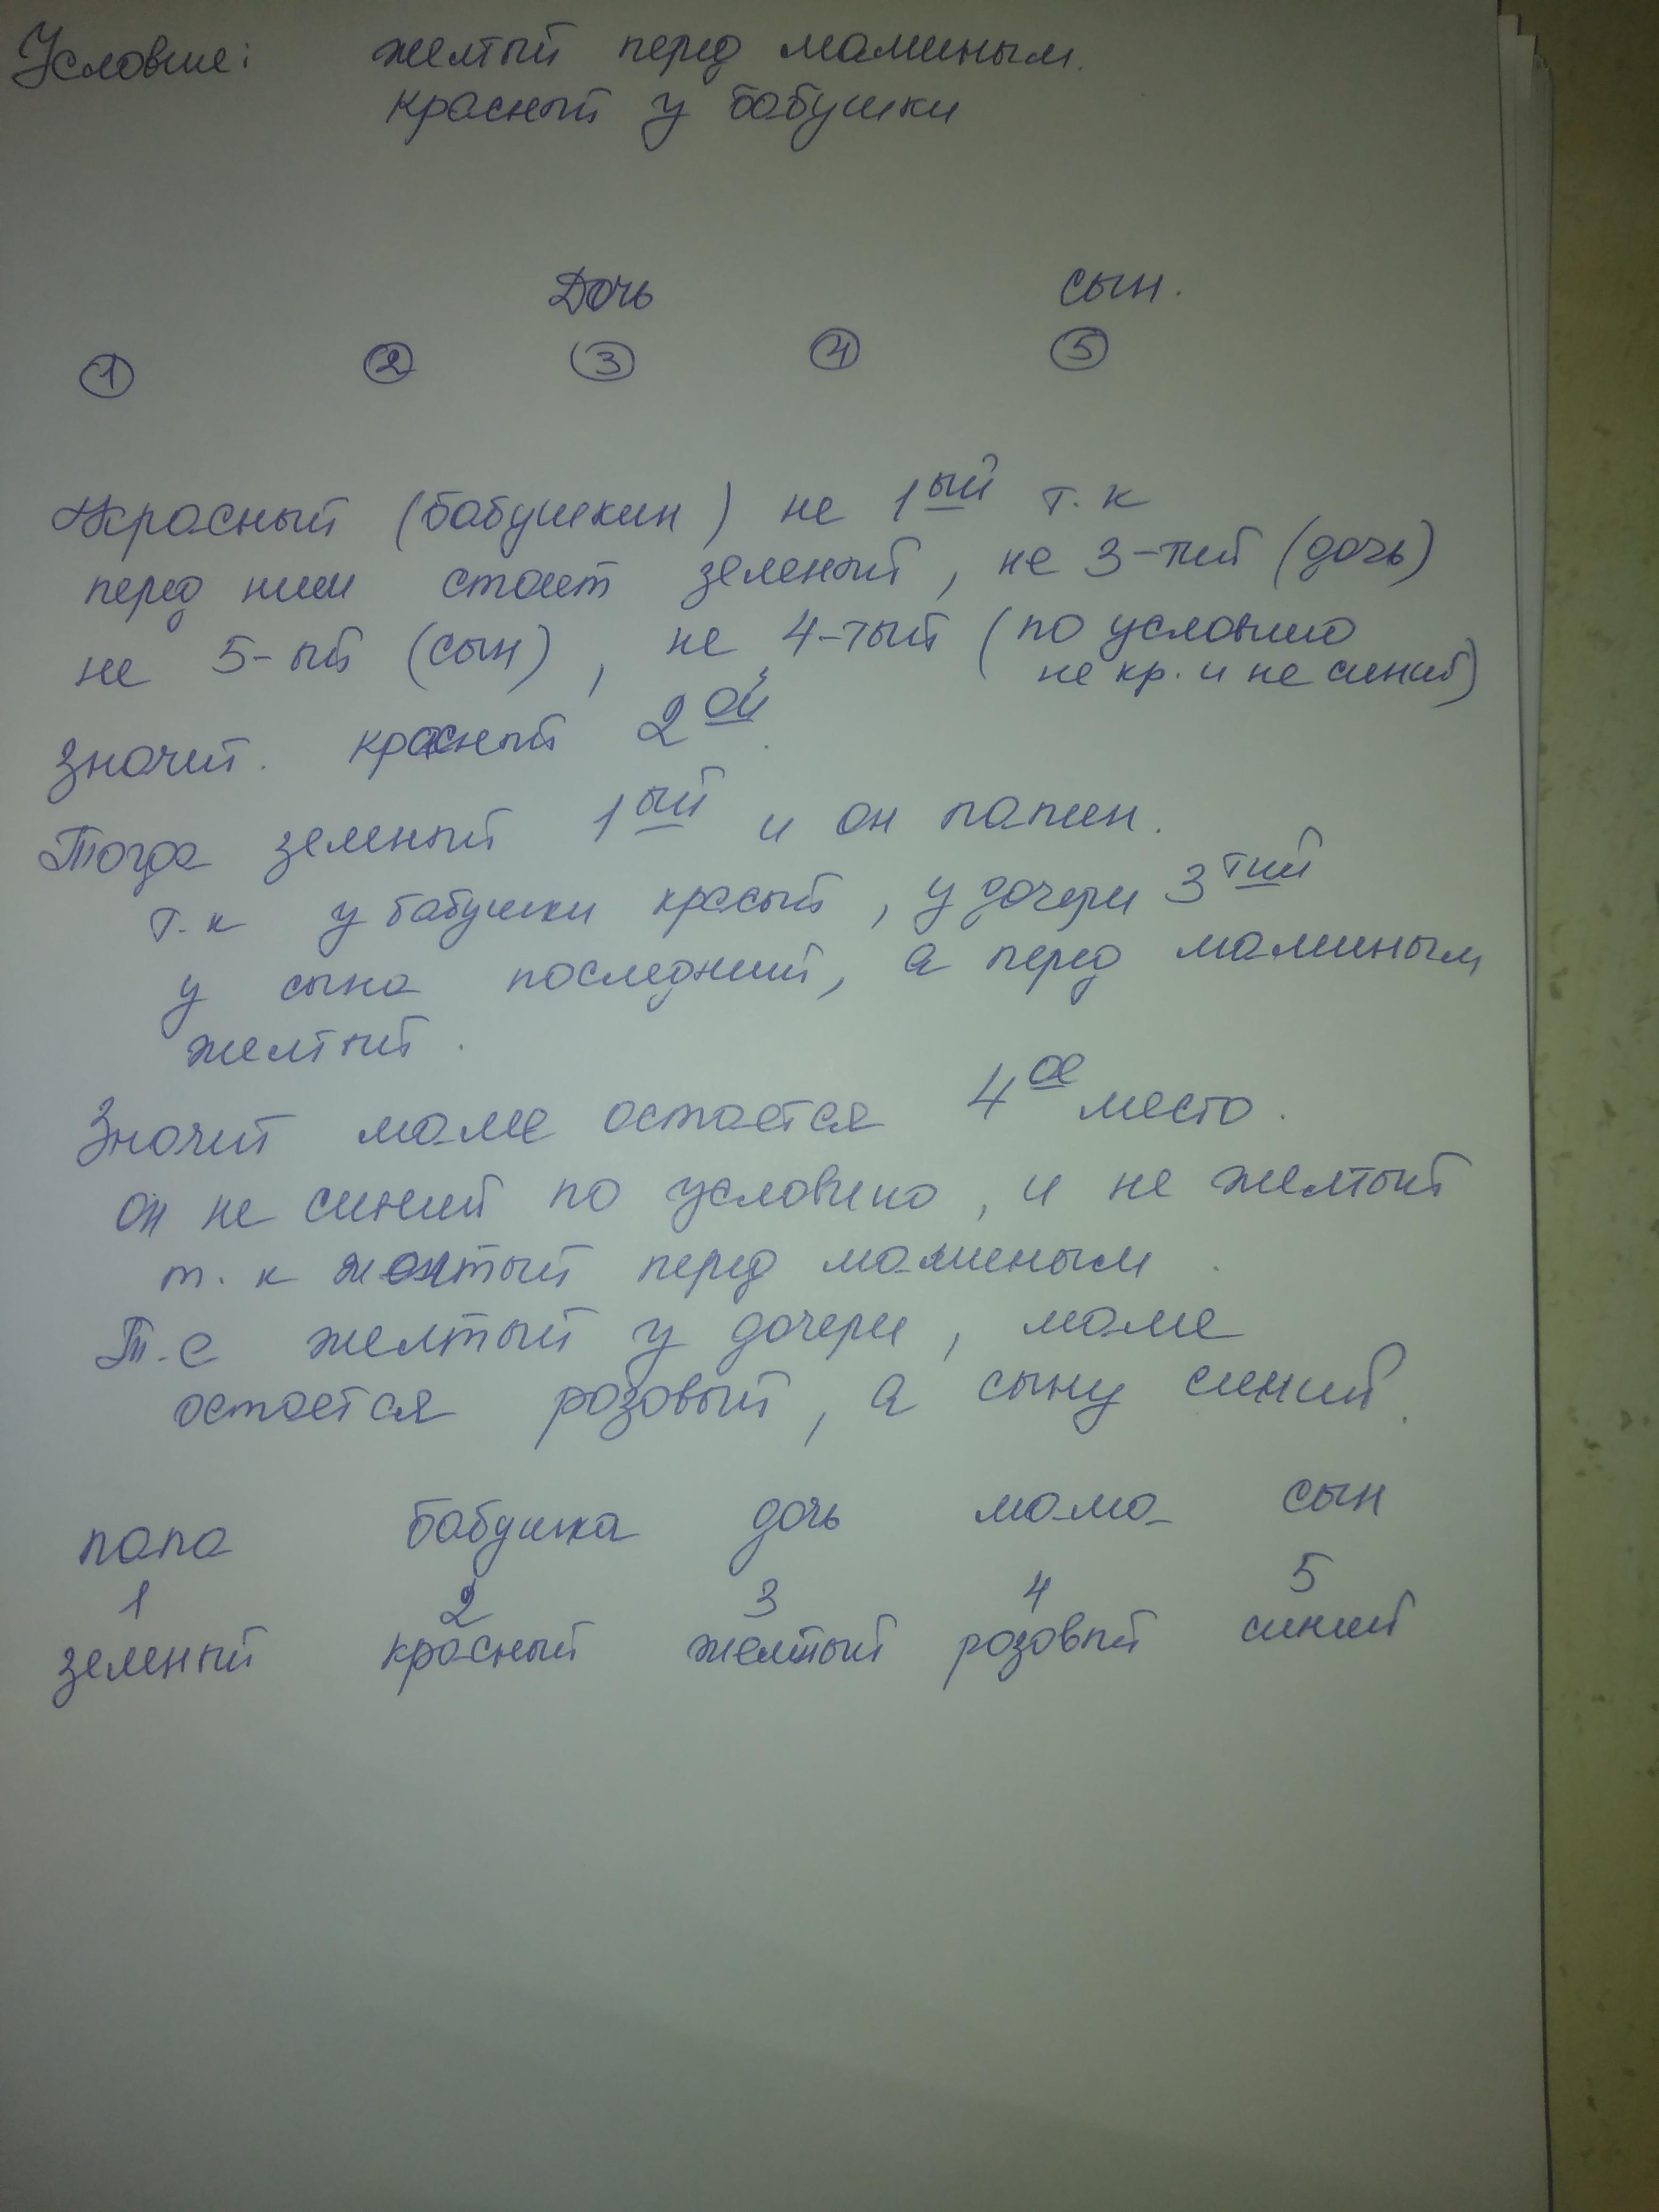 Условие: желтый перед маминым.
красный у бабушки
Дочь сын.
1 2 3 4 5
красный (бабушкин) не 1ый т.к
перед ним стоит зеленый, не 3-тий (дочь)
не 5-ый (сын), не 4-тый (по условию
не кр. и не синий)
Значит. красный 2ой.
Тогда зеленый 1ый и он папин.
т.к у бабушки красый, у дочери 3тий
у сына последний, а перед маминым
желтый.
Значит маме остается 4ое место.
он не синий по условию, и не желтый
т.к желтый перед маминым.
Т.е желтый у дочери, маме
остается розовый, а сыну синий.
папа бабушка дочь мама сын
1 2 3 4 5
зеленый красный желтый розовый синий